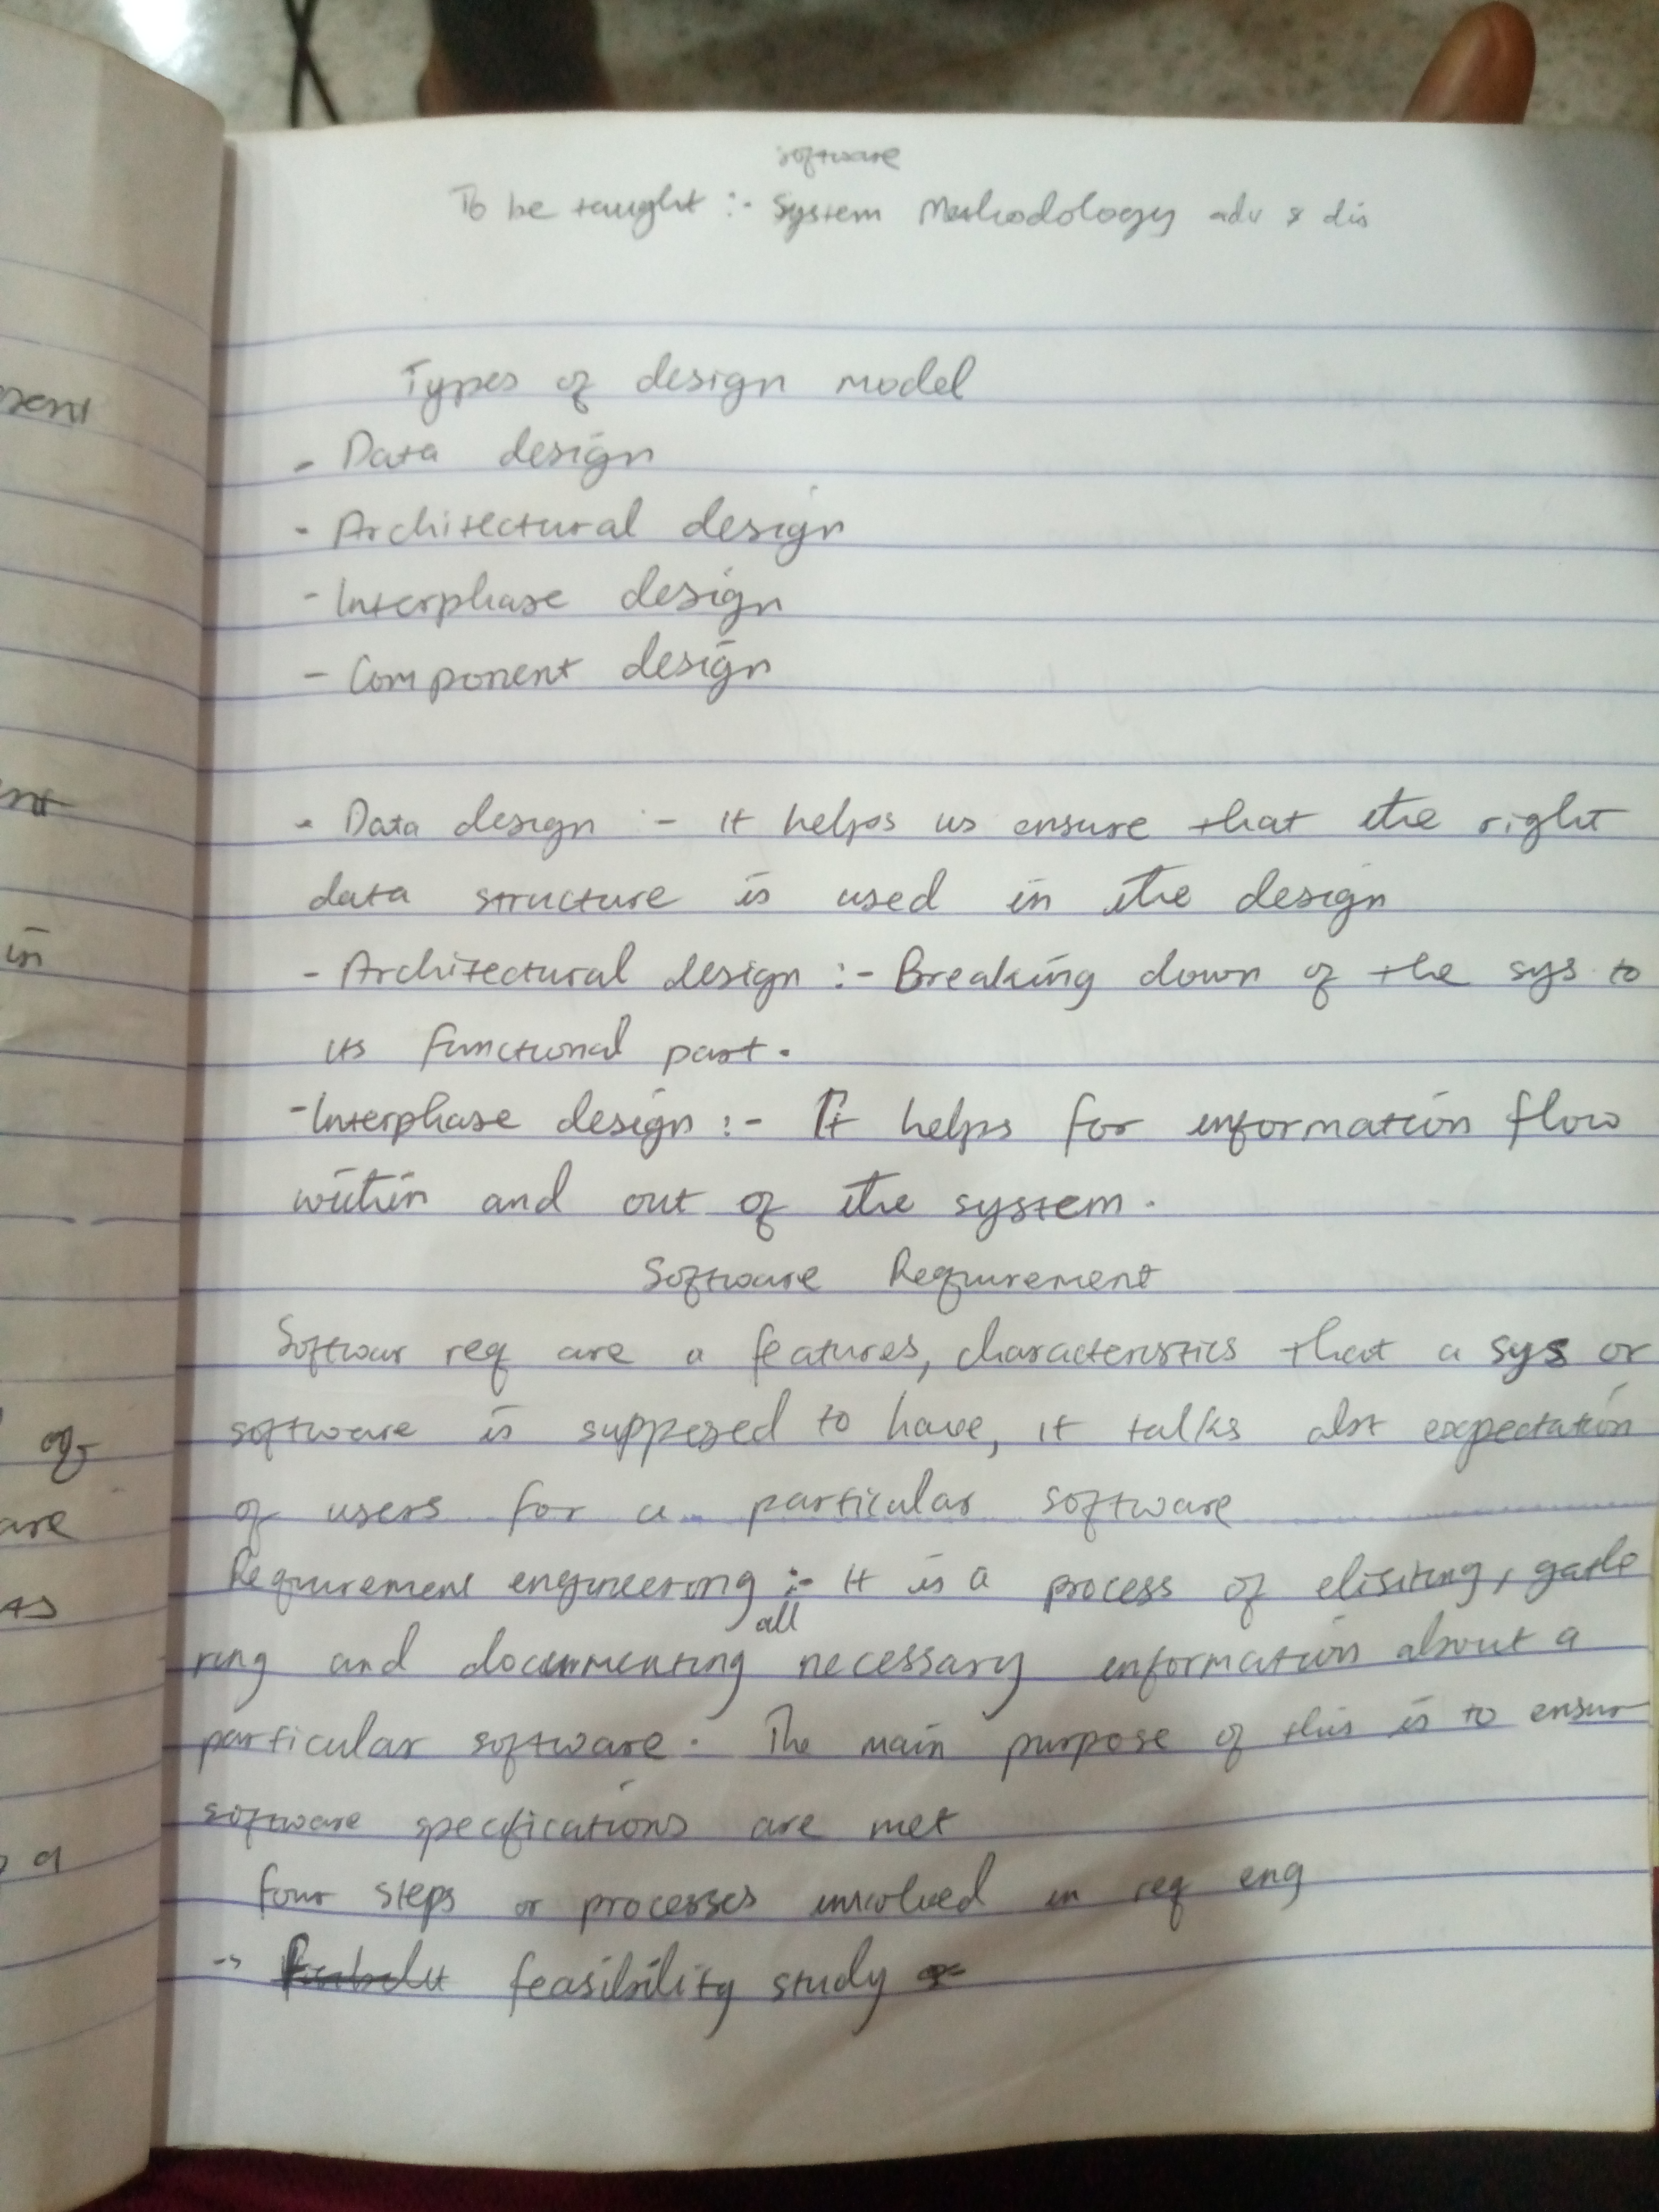 software
To be taught :- System Methodology adv & dis
Types of design model
- Data design
- Architectural design
- Interphase design
- Component design
- Data design :- It helps us ensure that the right
data structure is used in the design
- Architectural design :- Breaking down of the sys to
its functional part.
- Interphase design :- It helps for information flow
within and out of the system.
Software Requirement
Softwar req are a features, characteristics that a sys or
software is supposed to have, it talks abt expectation
of users for a particular software
Requirement engineering :- It is a process of elisiting, gathe
all
ring and documenting necessary information about a
particular software. The main purpose of this is to ensur
software specifications are met
four steps or processes involved in req eng
-> feasibility study
sent
nt
in
of
are
as
a